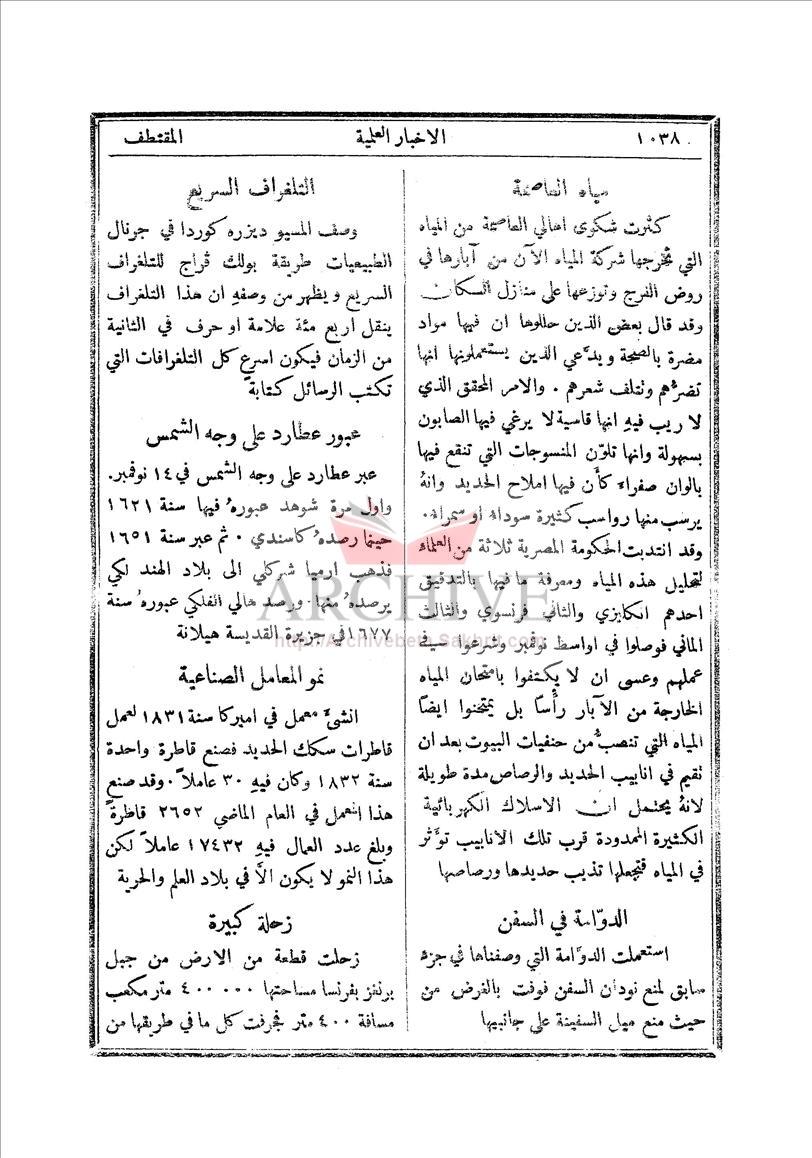 ١٠٣٨ الاخبار العلمية المقتطف
مياه العاصمة
كثرت شكوى اهالي العاصمة من المياه
التي تخرجها شركة المياه الآن من آبارها في
روض الفرج وتوزعها على منازل السكان
وقد قال بعض الذين حللوها ان فيها مواد
مضرة بالصحة ويدَّعي الذين يستعملونها انها
تضرُّهم ونتلف شعرهم . والامر المحقق الذي
لا ريب فيهِ انها قاسية لا يرغي فيها الصابون
بسهولة وانها تلوّن المنسوجات التي تنقع فيها
بالوان صفراء كأن فيها املاح الحديد وانهُ
يرسب منها رواسب كثيرة سوداء او سمراء.
وقد انتدبت الحكومة المصرية ثلاثة من العلماء
لتحليل هذه المياه ومعرفة ما فيها بالتدقيق
احدهم انكليزي والثاني فرنسوي والثالث
الماني فوصلوا في اواسط نوفمبر وشرعوا في
عملهم وعسى ان لا يكتفوا بامتحان المياه
الخارجة من الآبار رأساً بل يمتحنوا ايضاً
المياه التي تنصبُّ من حنفيات البيوت بعد ان
نقيم في انابيب الحديد والرصاص مدة طويلة
لانهُ يحتمل ان الاسلاك الكهربائية
الكثيرة الممدودة قرب تلك الانابيب توَّثر
في المياه فتجعلها تذيب حديدها ورصاصها
الدوّامة في السفن
استعملت الدوَّامة التي وصفناها في جزء
سابق لمنع نودان السفن فوفت بالغرض من
حيث منع ميل السفينة على جانبيها
التلغراف السريع
وصف المسيو ديزره كوردا في جرنال
الطبيعيات طريقة بولك ڤراج للتلغراف
السريع ويظهر من وصفهِ ان هذا التلغراف
ينقل اربع مئة علامة او حرف في الثانية
من الزمان فيكون اسرع كل التلغرافات التي
تكتب الرسائل كتابةً
عبور عطارد على وجه الشمس
عبر عطارد على وجه الشمس في ١٤ نوفمبر.
واول مرة شوهد عبورهُ فيها سنة ١٦٢١
حينما رصدهُ كاسندي . ثم عبر سنة ١٦٥١
فذهب ارميا شركلي الى بلاد الهند لكي
يرصدهُ منها. ورصد هالي الفلكي عبورهُ سنة
١٦٧٧ في جزيرة القديسة هيلانة
نمو المعامل الصناعية
انشئَ معمل في اميركا سنة ١٨٣١ لعمل
قاطرات سكك الحديد فصنع قاطرة واحدة
سنة ١٨٣٢ وكان فيهِ ٣٠ عاملاً. وقد صنع
هذا المعمل في العام الماضي ٢٦٥٢ قاطرةً
وبلغ عدد العمال فيهِ ١٧٤٣٢ عاملاً لكن
هذا النمو لا يكون الاَّ في بلاد العلم والحرية
زحلة كبيرة
زحلت قطعة من الارض من جبل
برنفز بفرنسا مساحتها ٤٠٠٠٠٠ متر مكعب
مسافة ٤٠٠ متر فجرفت كل ما في طريقها من
ARCHIVE
http://Archivebeta.Sakhrit.com